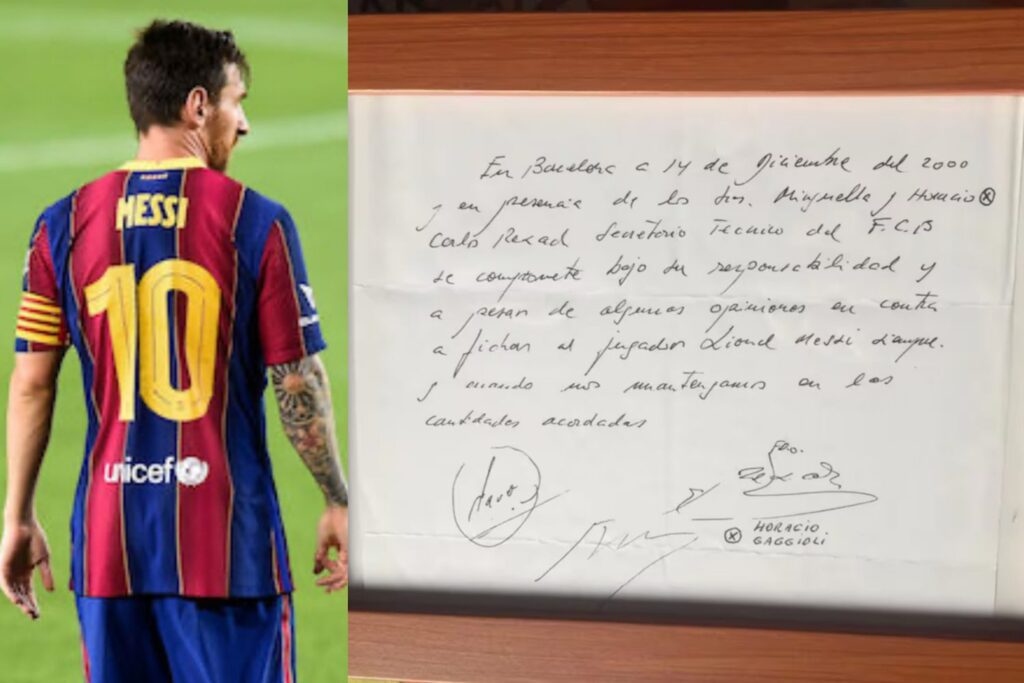 MESSI
10
unicef
En Barcelona a 14 de Diciembre del 2000
y en presencia de los Sres. Minguella y Horacio
Carlos Rexach Secretario Técnico del F.C.B
se compromete bajo su responsabilidad y
a pesar de algunas opiniones en contra
a fichar al jugador Lionel Messi siempre
y cuando nos mantengamos en las
cantidades acordadas
HORACIO
GAGGIOLI